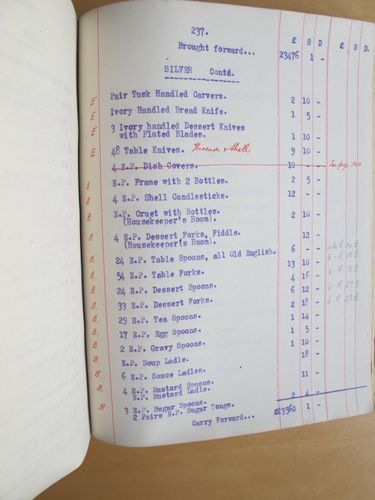 237.
£ S D £ S. D.
Brought forward... 23476 1 -
SILVER Contd.
E Pair Tusk Handled Carvers. 2 10 -
E Ivory Handled Bread Knife. 1 5 -
E 3 Ivory handled Dessert Knives
with Plated Blades. 1 10 -
E 48 Table Knives. Thread & Shell 9 10 -
4 E.P. Dish Covers. 10 -
B. E.P. Frame with 2 Bottles. 2 5 -
B. 4 E.P. Shell Candlesticks. 12 -
B. E.P. Cruet with Bottles.
(Housekeeper's Room). 2 10 -
B. 4 E.P. Dessert Forks, Fiddle.
(Housekeeper's Room). 12 -
B. 24 E.P. Table Spoons, all Old English. 6 - -
B. 54 E.P. Table Forks. 13 10 -
B. 24 E.P. Dessert Spoons. 4 16 -
B. 33 E.P. Dessert Forks. 6 12 -
B. 29 E.P. Tea Spoons. 2 18 -
B. 17 E.P. Egg Spoons. 1 14 -
B. 2 E.P. Gravy Spoons. 1 5 -
B. E.P. Soup Ladle. 1 10 -
B. 6 E.P. Sauce Ladles. 18 -
B. 4 E.P. Mustard Spoons.
E.P. Mustard Ladle. 11 -
B. 3 E.P. Sugar Spoons.
2 Pairs E.P. Sugar Tongs. 2 4 -
Carry Forward... £23560 1 -